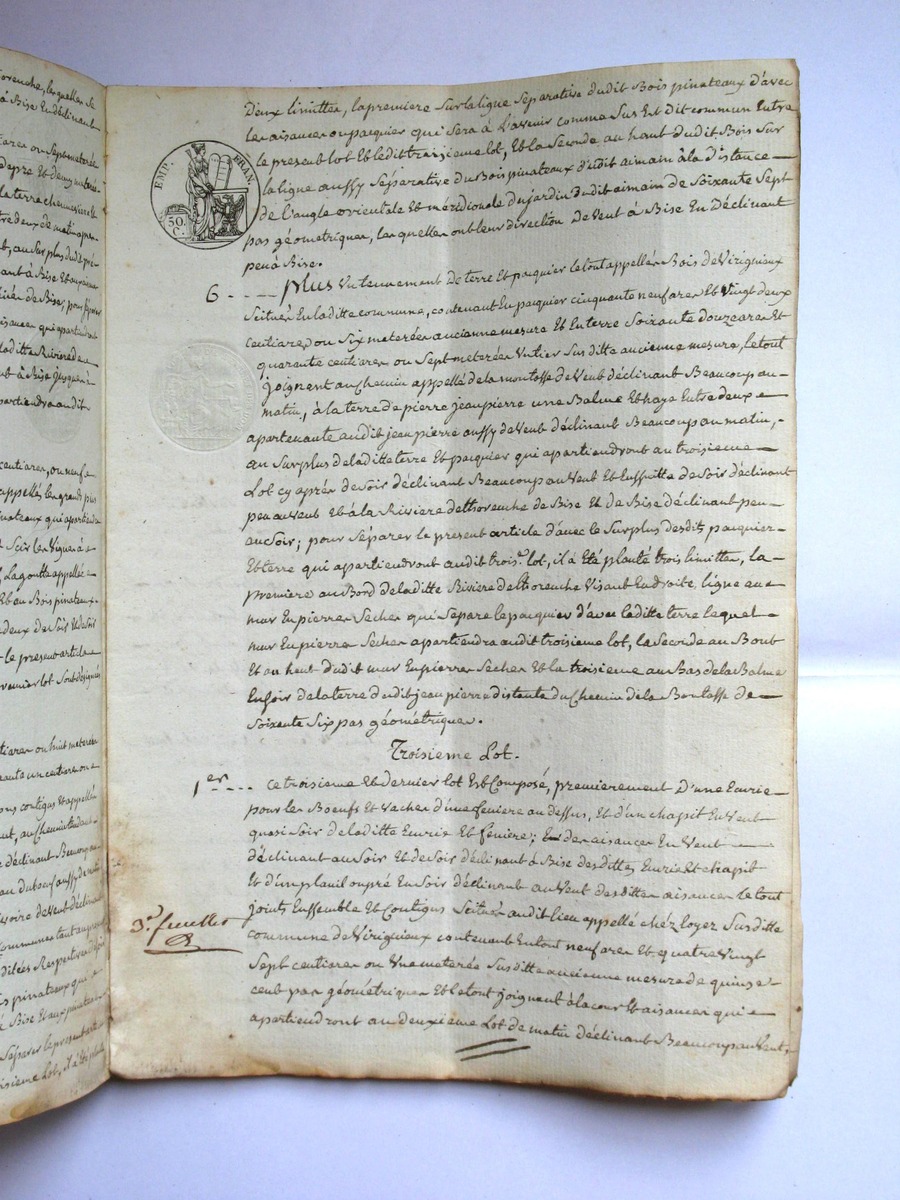 Deux limittes, la premiere sur la ligue separative dudit Bois pinateaux d'avec
les aisances ou paquier qui sera à l'avenir comme sus Est dit commun Entre
le present lot Et ledit troisieme lot, Et la seconde au haut dudit Bois sur
la ligue aussy séperative du Bois pinateaux dudit aimain à la distance
de l'angle orientale Et méridionale du jardin dudit aimain de soixante sept
pas géometriques, lesquelles ont leur direction de Vent à Bise En Déclinant
peu à Bise.
EMP. FRAN.
50 C.
6 ---- plus un tennement de terre Et paquier le tout appellés Bois de Viriguieux
scitués En laditte commune, contenant En paquier cinquante neuf ares Et Vingt deux
centiares, ou six meterées ancianne mesure Et En terre soixante douze ares Et
quarante centiares ou sept meterées Un tier susditte ancienne mesure, le tout
joignent au chemin appellé de la montasse de Vent déclinant Beaucoup au
matin, à la terre de pierre jeanpierre une Balme Et haye Entre deux
apartenante audit jeanpierre aussy de Vent déclinant Beaucoup au matin,
au surplus de laditte terre Et paquier qui apartiendront au troisieme
Lot cy après de soir déclinant Beaucoup au Vent Et Ensuitte de soir déclinant
peu au Vent Et à la Riviere de thorenche de Bise Et de Bise déclinant peu
au soir; pour séparer le present article d'avec le surplus desdits paquier
Et terre qui apartiendront audit trois.e lot, il à été planté trois limittes, la
premiere au Bord de laditte Riviere de thoranche Visant En droite ligue au
mur En pierres seches qui sépare le paquier d'avec laditte terre lequel
mur En pierres seches apartiendra audit troisieme lot, la seconde au Bout
Et au haut dudit mur En pierres seches Et la troisieme au Bas de la Balme
En soir de la terre dudit jeanpierre distente du Chemin de la Boutasse de
soixente six pas géometriques.
Troisieme Lot.
1er ---- Ce troisieme Et dernier lot Est Composé, premierement D'une Ecurie
pour les Boeufs Et Vaches d'une feniere au dessus, Et d'un chapit En Vent
quasi soir de laditte Ecurie Et feniere; En des aisances En Vent
déclinant au soir Et de soir déclinant à Bise desdittes Ecurie Et chapit
Et d'un plauil ou pré En soir déclinant au Vent desdittes aisances le tout
joints Ensemble Et Contigus scitués audit lieu appellé chéz loyer susditte
3.e feuillet
commune de Viriguieux contenant En tout neuf ares Et quatre Vingt
sept centiares ou Une meterée susditte ancienne mesure de quinse
cent pas géometriques Et le tout joignent à la cour Et aisances qui
apartiendront au deuxieme Lot de matin déclinant Beaucoup au Vent,